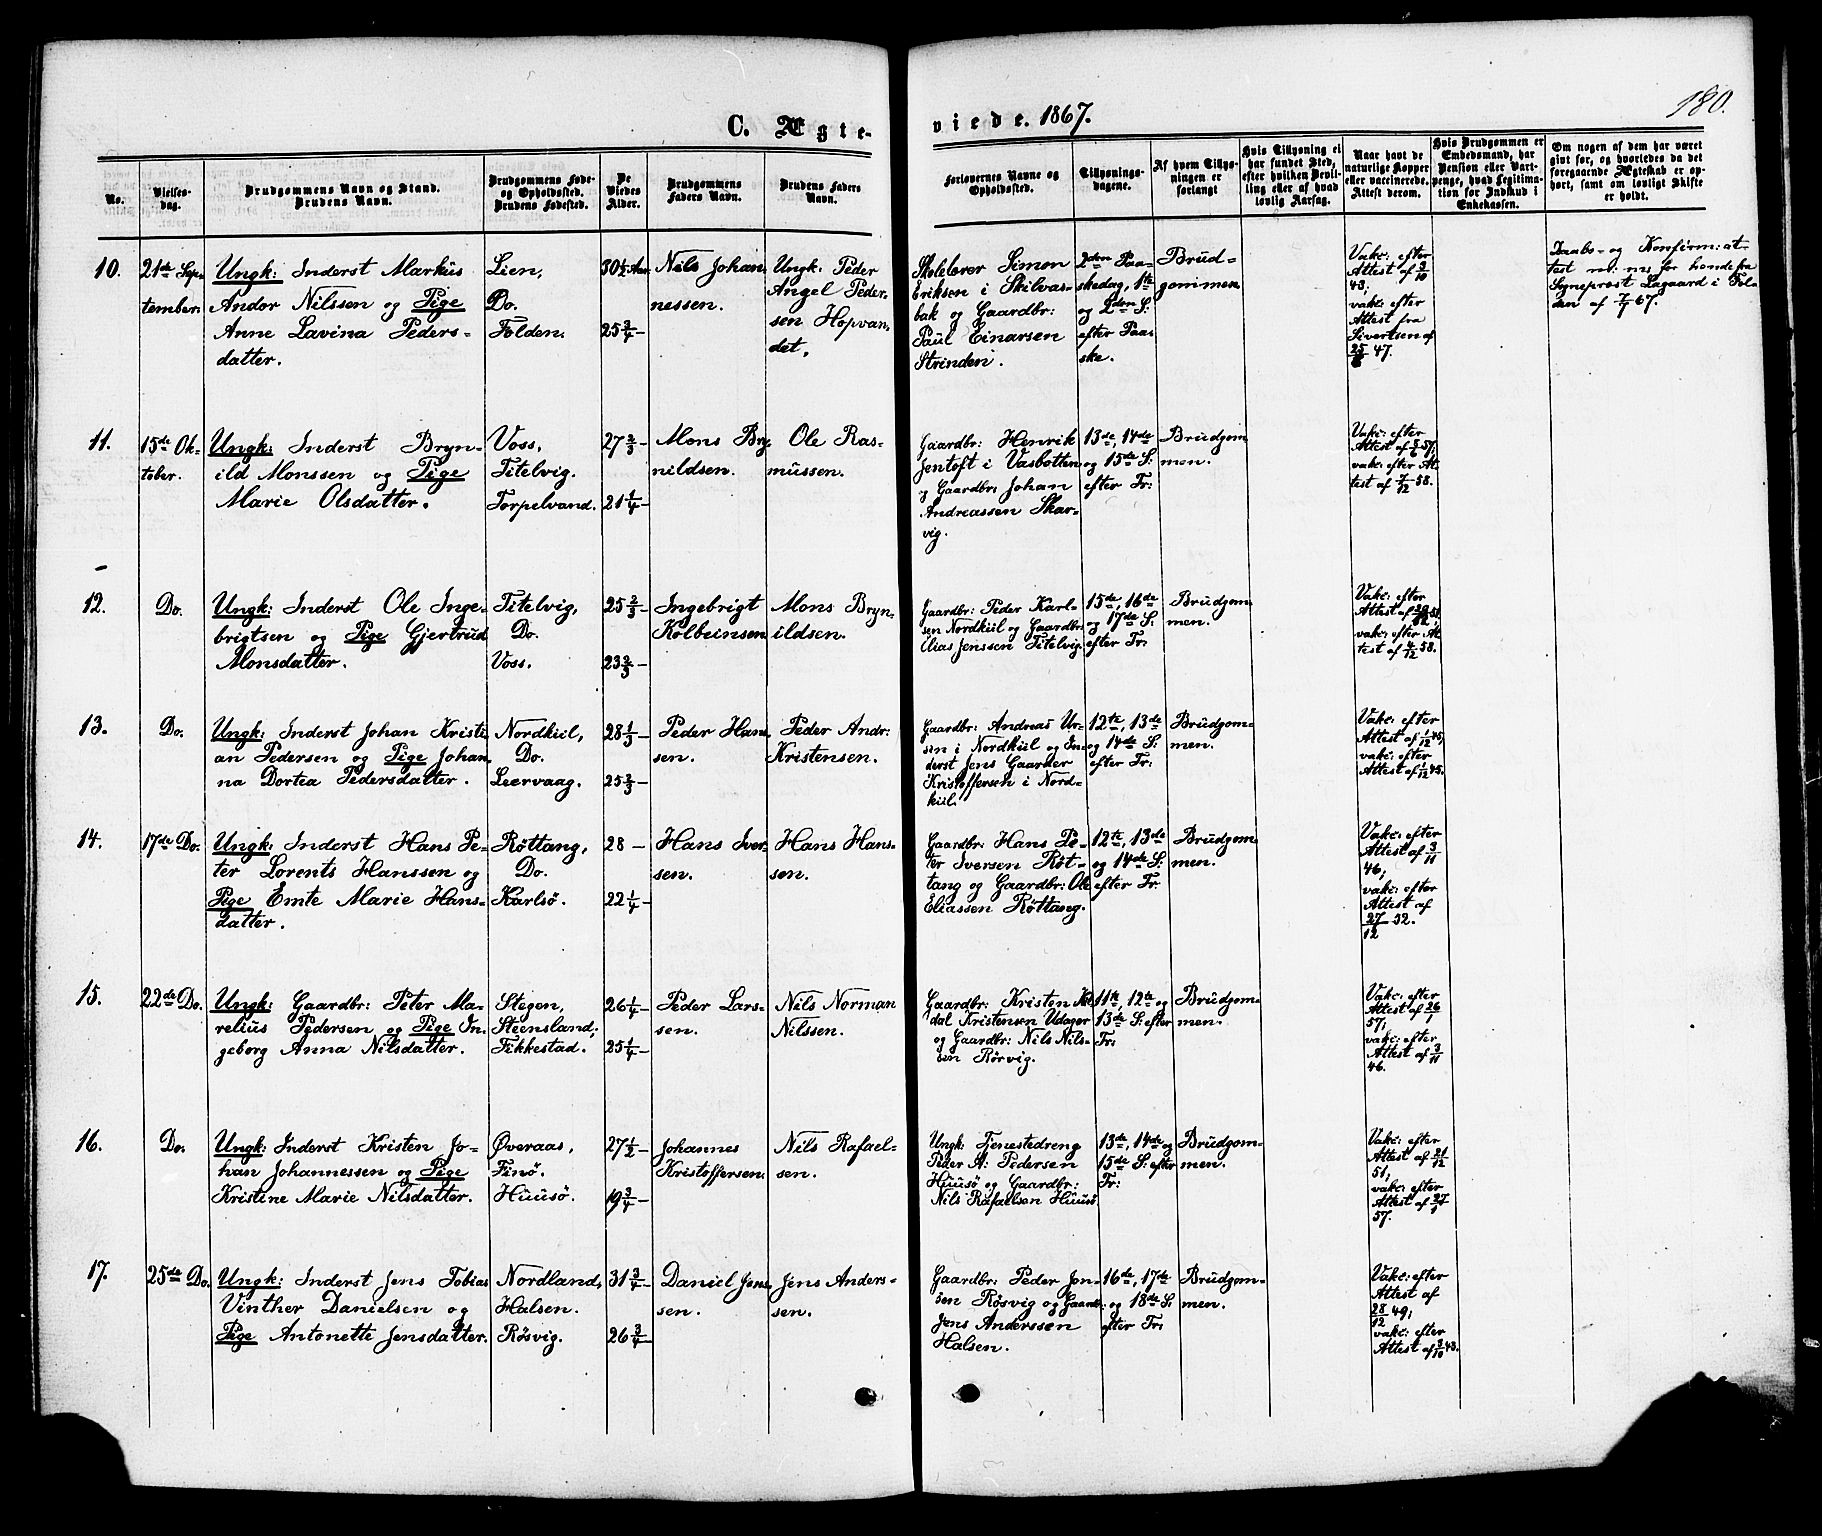 180.
C. Ægte-
viede. 1867.
No.
Vielses-
dag.
Brudgommens Navn og Stand.
Brudens Navn.
Brudgommens Føde-
og Opholdssted.
Brudens Fødested.
De
Viedes
Alder.
Brudgommens
Faders Navn.
Brudens Faders
Navn.
Forlovernes Navne og
Opholdssted.
Tillysnings-
dagene.
Af hvem Tillys-
ningen er
forlangt
Hvis Tillysning ei
har fundet Sted,
efter hvilken Bevil-
ling eller af hvad
lovlig Aarsag.
Naar havt de
naturlige Kopper
eller vaccinerede.
Attest derom.
Hvis Brudgommen er
Embedsmand, har
Pension eller Vart-
penge, hvad Legitima-
tion for Indskud i
Enkekassen.
Om nogen af dem har været
gift før, og hvorledes da det
foregaaende Ægteskab er op-
hørt, samt om lovligt Skifte
er holdt.
10.
21de Sep-
tember.
Ungk: Inderst Markus
Andor Nilssen og Pige
Anne Lavina Peders-
datter.
Lien,
Do.
Folden.
30½ Aar
25¾
Nils Johan-
nessen.
Ungk: Peder
Angel Peder-
sen Hopvan-
det.
Skolelærer Simon
Eriksen i Skilvas-
bak og Gaardbr:
Paul Einarsen
Strinden.
2den Paa-
skedag, 1ste
og 2den S:
efter Paa-
ske.
Brud-
gommen
Vakc: efter
Attest af 3/10
43,
vakc: efter
Attest fra
Sivertsen af
47.
Daabs- og Konfirm: at-
test m: m: for hende fra
Sognepræst Lagaard i Fol-
den af 7/7 67.
11.
15de Ok-
tober.
Ungk: Inderst Bryn-
ild Monssen og Pige
Marie Olsdatter.
Voss,
Titelvig.
Torpelvand.
27⅔ -
21¼ -
Mons Bry-
nildsen.
Ole Ras-
mussen.
Gaardbr: Henrik
Jentoft i Vasbotten
og Gaardbr: Johan
Andreassen Skar-
vig.
13de, 14de
og 15de S:
efter Tr:
Brudgom-
men.
Vakc: efter
Attest af 57,
vakc: efter At-
test af 7/12 58.
12.
Do.
Ungk: Inderst Ole Inge-
brigtsen og Pige Gjertrud
Monsdatter.
Titelvig,
Do.
Voss.
25⅔ -
23⅔ -
Ingebrigt
Kolbeinsen
Mons Bryn-
ildsen.
Gaardbr: Peder Karl-
sen Nordkiil og Gaardbr:
Elias Jenssen Titelvig.
15de, 16de
og 17de S:
efter Tr:
Brudgom-
men.
Vakc: efter
Attest af
vakc: efter At-
test af 4/12 58.
13.
Do.
Ungk: Inderst Johan Kristi-
an Pedersen og Pige Johan-
na Dortea Pedersdatter.
Nordkiil,
Do.
Leervaag.
28⅓ -
25⅔ -
Peder Han-
sen.
Peder Andr:
Kristensen.
Gaardbr: Andreas Ur-
sin i Nordkiil og In-
derst Jens Gaarder
Kristoffersen i Nord-
kiil.
12te, 13de
og 14de S:
efter Tr:
Brudgom-
men.
Vakc: efter
Attest af 1/12 45,
vakc: efter
Attest af 1/12 45.
14.
17de Do.
Ungk: Inderst Hans Pe-
ter Lorents Hanssen og
Pige Emte Marie Hans-
datter.
Røttang,
Do.
Karlsø.
28 -
22¼ -
Hans Iver-
sen.
Hans Hans-
sen.
Gaardbr: Hans Pe-
ter Iversen Røt-
tang og Gaardbr: Ole
Eliassen Røttang.
12te, 13de
og 14de S:
efter Tr.
Brudgom-
men.
Vakc: efter
Attest af 3/11
46,
vakc: efter
Attest af
27/12 52.
15.
22de Do.
Ungk: Gaardbr: Peter Ma-
relius Pedersen og Pige In-
geborg Anna Nilsdatter.
Stegen,
Steensland,
Fikkestad.
26¼ -
25¼ -
Peder Lars-
sen.
Nils Norman
Nilssen.
Gaardbr: Kristen
dal Kristensen Udager
og Gaardbr: Nils Nils-
sen Rørvig.
11te, 12te og
13de S: efter
Tr:
Brudgom-
men.
Vakc: efter
Attest af
57,
vakc: efter
Attest af 3/11
46.
16.
Do.
Ungk: Inderst Kristen Jo-
han Johannessen og Pige
Kristine Marie Nilsdatter.
Øveraas,
Finø.
Huusø.
27½ -
19¾ -
Johannes
Kristoffersen.
Nils Rafael-
sen.
Ungk: Tjenestedreng
Peder A: Pedersen
Huusø og Gaardbr:
Nils Rafaelsen Huusø.
13de, 14de og
15de S: efter
Tr:
Brudgom-
men.
Vakc: efter
Attest af 21/12
51,
vakc: efter
Attest af 27/1
57.
17.
25de Do.
Ungk: Inderst Jens Tobias
Vinther Danielsen og
Pige Antonette Jensdatter.
Nordland,
Halsen.
Røsvig.
31¾ -
26¾ -
Daniel Jens-
sen.
Jens Anders-
sen.
Gaardbr: Peder Jon-
sen Røsvig og Gaardbr:
Jens Anderssen
Halsen.
16de, 17de
og 18de S:
efter Tr:
Brudgom-
men.
Vakc: efter
Attest af
28/12 49,
vakc: efter
Attest af 3/10 43.